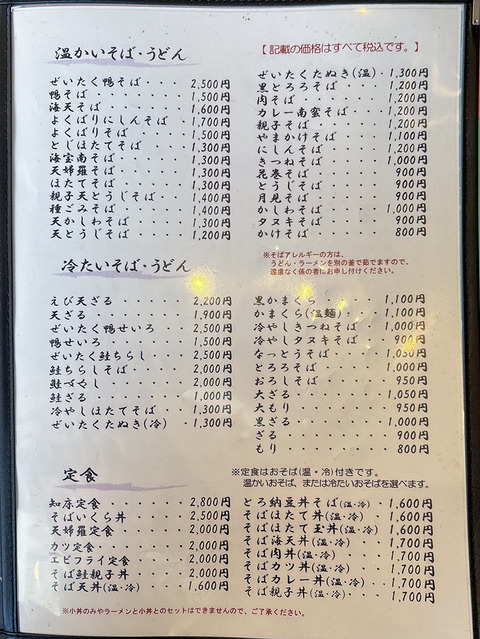 温かいそば・うどん
【 記載の価格はすべて税込です。】
ぜいたく鴨そば・・・・2,500円
鴨そば・・・・・・・1,500円
海天そば・・・・・・1,600円
よくばりにしんそば・・・1,700円
よくばりそば・・・・・1,500円
とじほたてそば・・・・1,300円
海宝南そば・・・・・1,300円
天婦羅そば・・・・・1,300円
ほたてそば・・・・・1,300円
親子天とうじそば・・・1,400円
種ごみそば・・・・・1,400円
天かしわそば・・・・1,300円
天とうじそば・・・・1,200円
ぜいたくたぬき(温)・1,300円
里とろろそば・・・・1,200円
肉そば・・・・・・・1,200円
カレー南蛮そば・・・1,200円
親子そば・・・・・・1,200円
やまかけそば・・・・1,100円
にしんそば・・・・・1,200円
きつねそば・・・・・1,000円
花巻そば・・・・・・900円
とうじそば・・・・・900円
月見そば・・・・・・900円
かしわそば・・・・・1,000円
タヌキそば・・・・・900円
かけそば・・・・・・800円
※そばアレルギーの方は、
うどん・ラーメンを別の釜で茹でますので、
遠慮なく係の者にお申し付けください。
冷たいそば・うどん
えび天ざる・・・・・2,200円
天ざる・・・・・・・1,900円
ぜいたく鴨せいろ・・・2,500円
鴨せいろ・・・・・・1,500円
ぜいたく鮭ちらし・・・2,500円
鮭ちらしそば・・・・2,000円
鮭づくし・・・・・・2,000円
鮭ざる・・・・・・・1,000円
冷やしほたてそば・・・1,300円
ぜいたくたぬき(冷)・・1,300円
黒かまくら・・・・・1,100円
かまくら(温麺)・・・1,100円
冷やしきつねそば・・・1,000円
冷やしタヌキそば・・・900円
なっとうそば・・・・1,050円
とろろそば・・・・・1,000円
おろしそば・・・・・950円
大ざる・・・・・・・1,050円
大もり・・・・・・・950円
黒ざる・・・・・・・1,000円
ざる・・・・・・・・900円
もり・・・・・・・・800円
定食
※定食はおそば(温・冷)付きです。
温かいおそば、または冷たいおそばを選べます。
知床定食・・・・・・2,800円
そばいくら丼・・・・2,500円
天婦羅定食・・・・・2,000円
カツ定食・・・・・・2,000円
エビフライ定食・・・2,000円
そば鮭親子丼・・・・2,000円
そば天丼(温・冷)・・・1,600円
とろ納豆丼そば(温・冷)・1,600円
そばほたて丼(温・冷)・・1,600円
そばほたて玉丼(温・冷)・1,600円
そば海天丼(温・冷)・・・1,700円
そば肉丼(温・冷)・・・・1,700円
そばカツ丼(温・冷)・・・1,700円
そばカレー丼(温・冷)・・1,700円
そば親子丼(温・冷)・・・1,700円
※小丼のみやラーメンと小丼とのセットはできませんので、ご了承ください。